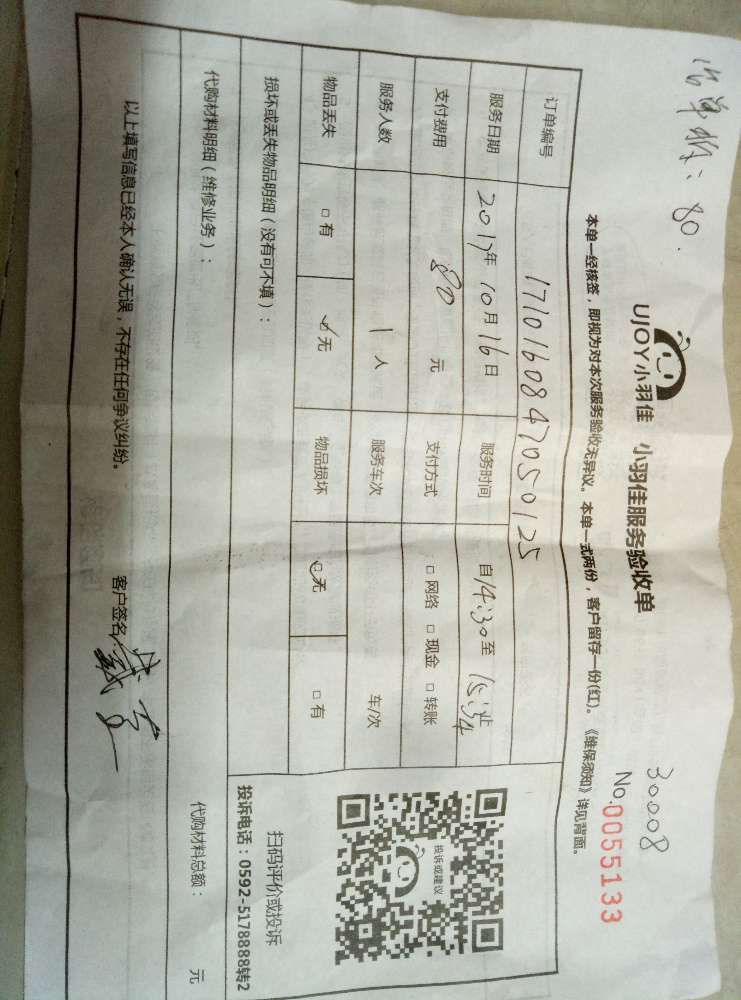 当单收：80.
30008
UJOY小羽佳 小羽佳服务验收单
No.0055133
本单一经核签，即视为对本次服务验收无异议。本单一式两份，客户留存一份(红)。《维保须知》详见背面。
订单编号 1710160847050125
服务日期 2017年10月16日 服务时间 自14:30至 止
支付费用 80 元 支付方式 □网络 □现金 □转账
服务人数 1人 服务车次 车/次
物品丢失 □有 ☑无 物品损坏 ☑无 □有
投诉或建议
扫码评价或投诉
投诉电话：0592-5178888转2
损坏或丢失物品明细（没有可不填）：
代购材料明细（维修业务）： 代购材料总额： 元
以上填写信息已经本人确认无误，不存在任何争议纠纷。 客户签名：